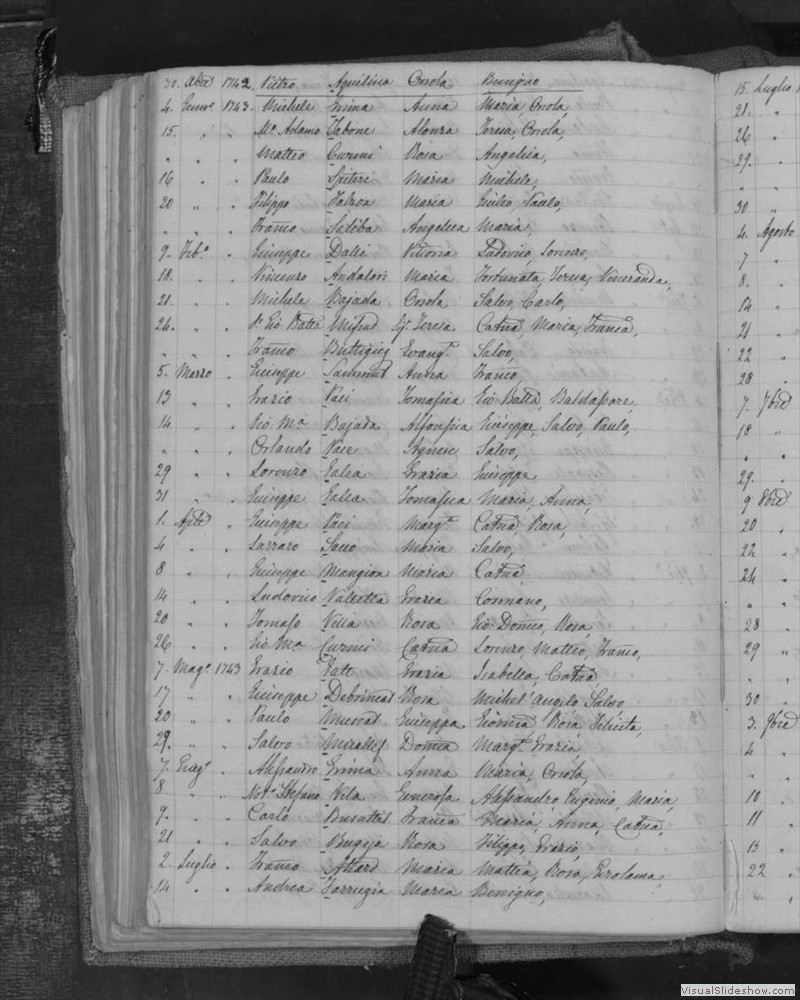 30. Xbre 1742. Pietro Aquilina Orsola Benigno
4. Genn.o 1743. Michele Grima Anna Maria, Orsola,
15. " " M.o Adamo Tabone Alonza Teresa, Orsola,
" " " Matteo Curmi Rosa Angelica,
16 " " Paulo Spiteri Maria Michele,
20 " " Filippo Falzon Maria Giulio, Paulo,
" " " Franco Saliba Angelica Maria,
9. Feb.o " Giuseppe Dalli Vittoria Ludovico, Lorenzo,
18. " " Vincenzo Maria Fortunata, Teresa, Veneranda,
21. " " Michele Bajada Orsola Salvo, Carlo,
24. " " Gio Batta Mifsud Sj. Teresa Catna, Maria, Franca,
" " " Franco Buttigieg Evang.a Salvo,
5. Marzo " Giuseppe Sammut Anna Franco,
13 " " Grazio Paci Tomasica Gio Batta, Baldasare,
14 " " Gio M.a Bajada Alfonsica Giuseppe, Salvo, Paulo,
" " " Orlando Pace Agnese Salvo,
29 " " Lorenzo Galea Grazia Giuseppe
31 " " Giuseppe Galea Tomasica Maria, Anna,
1. Aple " Giuseppe Paci Marg.a Catna, Rosa,
4 " " Lazzaro Maria Salvo,
8 " " Giuseppe Mangion Maria Catna,
14 " " Ludovico Valletta Grazia
20 " " Tomaso Vella Rosa Gio Domco, Rosa,
26 " " Gio M.a Curmi Catna Lorenzo, Matteo, Franco,
7. Mag.o 1743 Grazio Grazia Isabella, Catna
17 " " Giuseppe Debrincat Rosa Michel'Angelo, Salvo
20 " " Paulo Muscat Giuseppa Rosa, Felicita,
29. " " Salvo Domca Marg.a Grazia
7. Giug.o " Alessandro Grima Anna Maria, Orsola,
8 " " Not.o Stefano Vila Generosa Alessandro, Eugenio, Maria
9. " " Carlo Busuttil Franca Maria, Anna, Catna,
21 " " Salvo Bugeja Rosa Filippo, Grazio,
2. Luglio " Franco Attard Maria Mattia, Rosa, Gerolama,
14 " " Andrea Farrugia Maria Benigno,
15. Luglio
21. "
26 "
29. "
" "
30 "
4. Agosto
7 "
8. "
14 "
21 "
22 "
28 "
7. 7bre
18 "
" "
29. "
9 8bre
20 "
22 "
24 "
" "
28 "
29 "
" "
30 "
3. 9bre
4 "
10 "
11 "
13 "
22 "
" "
VisualSlideshow.com